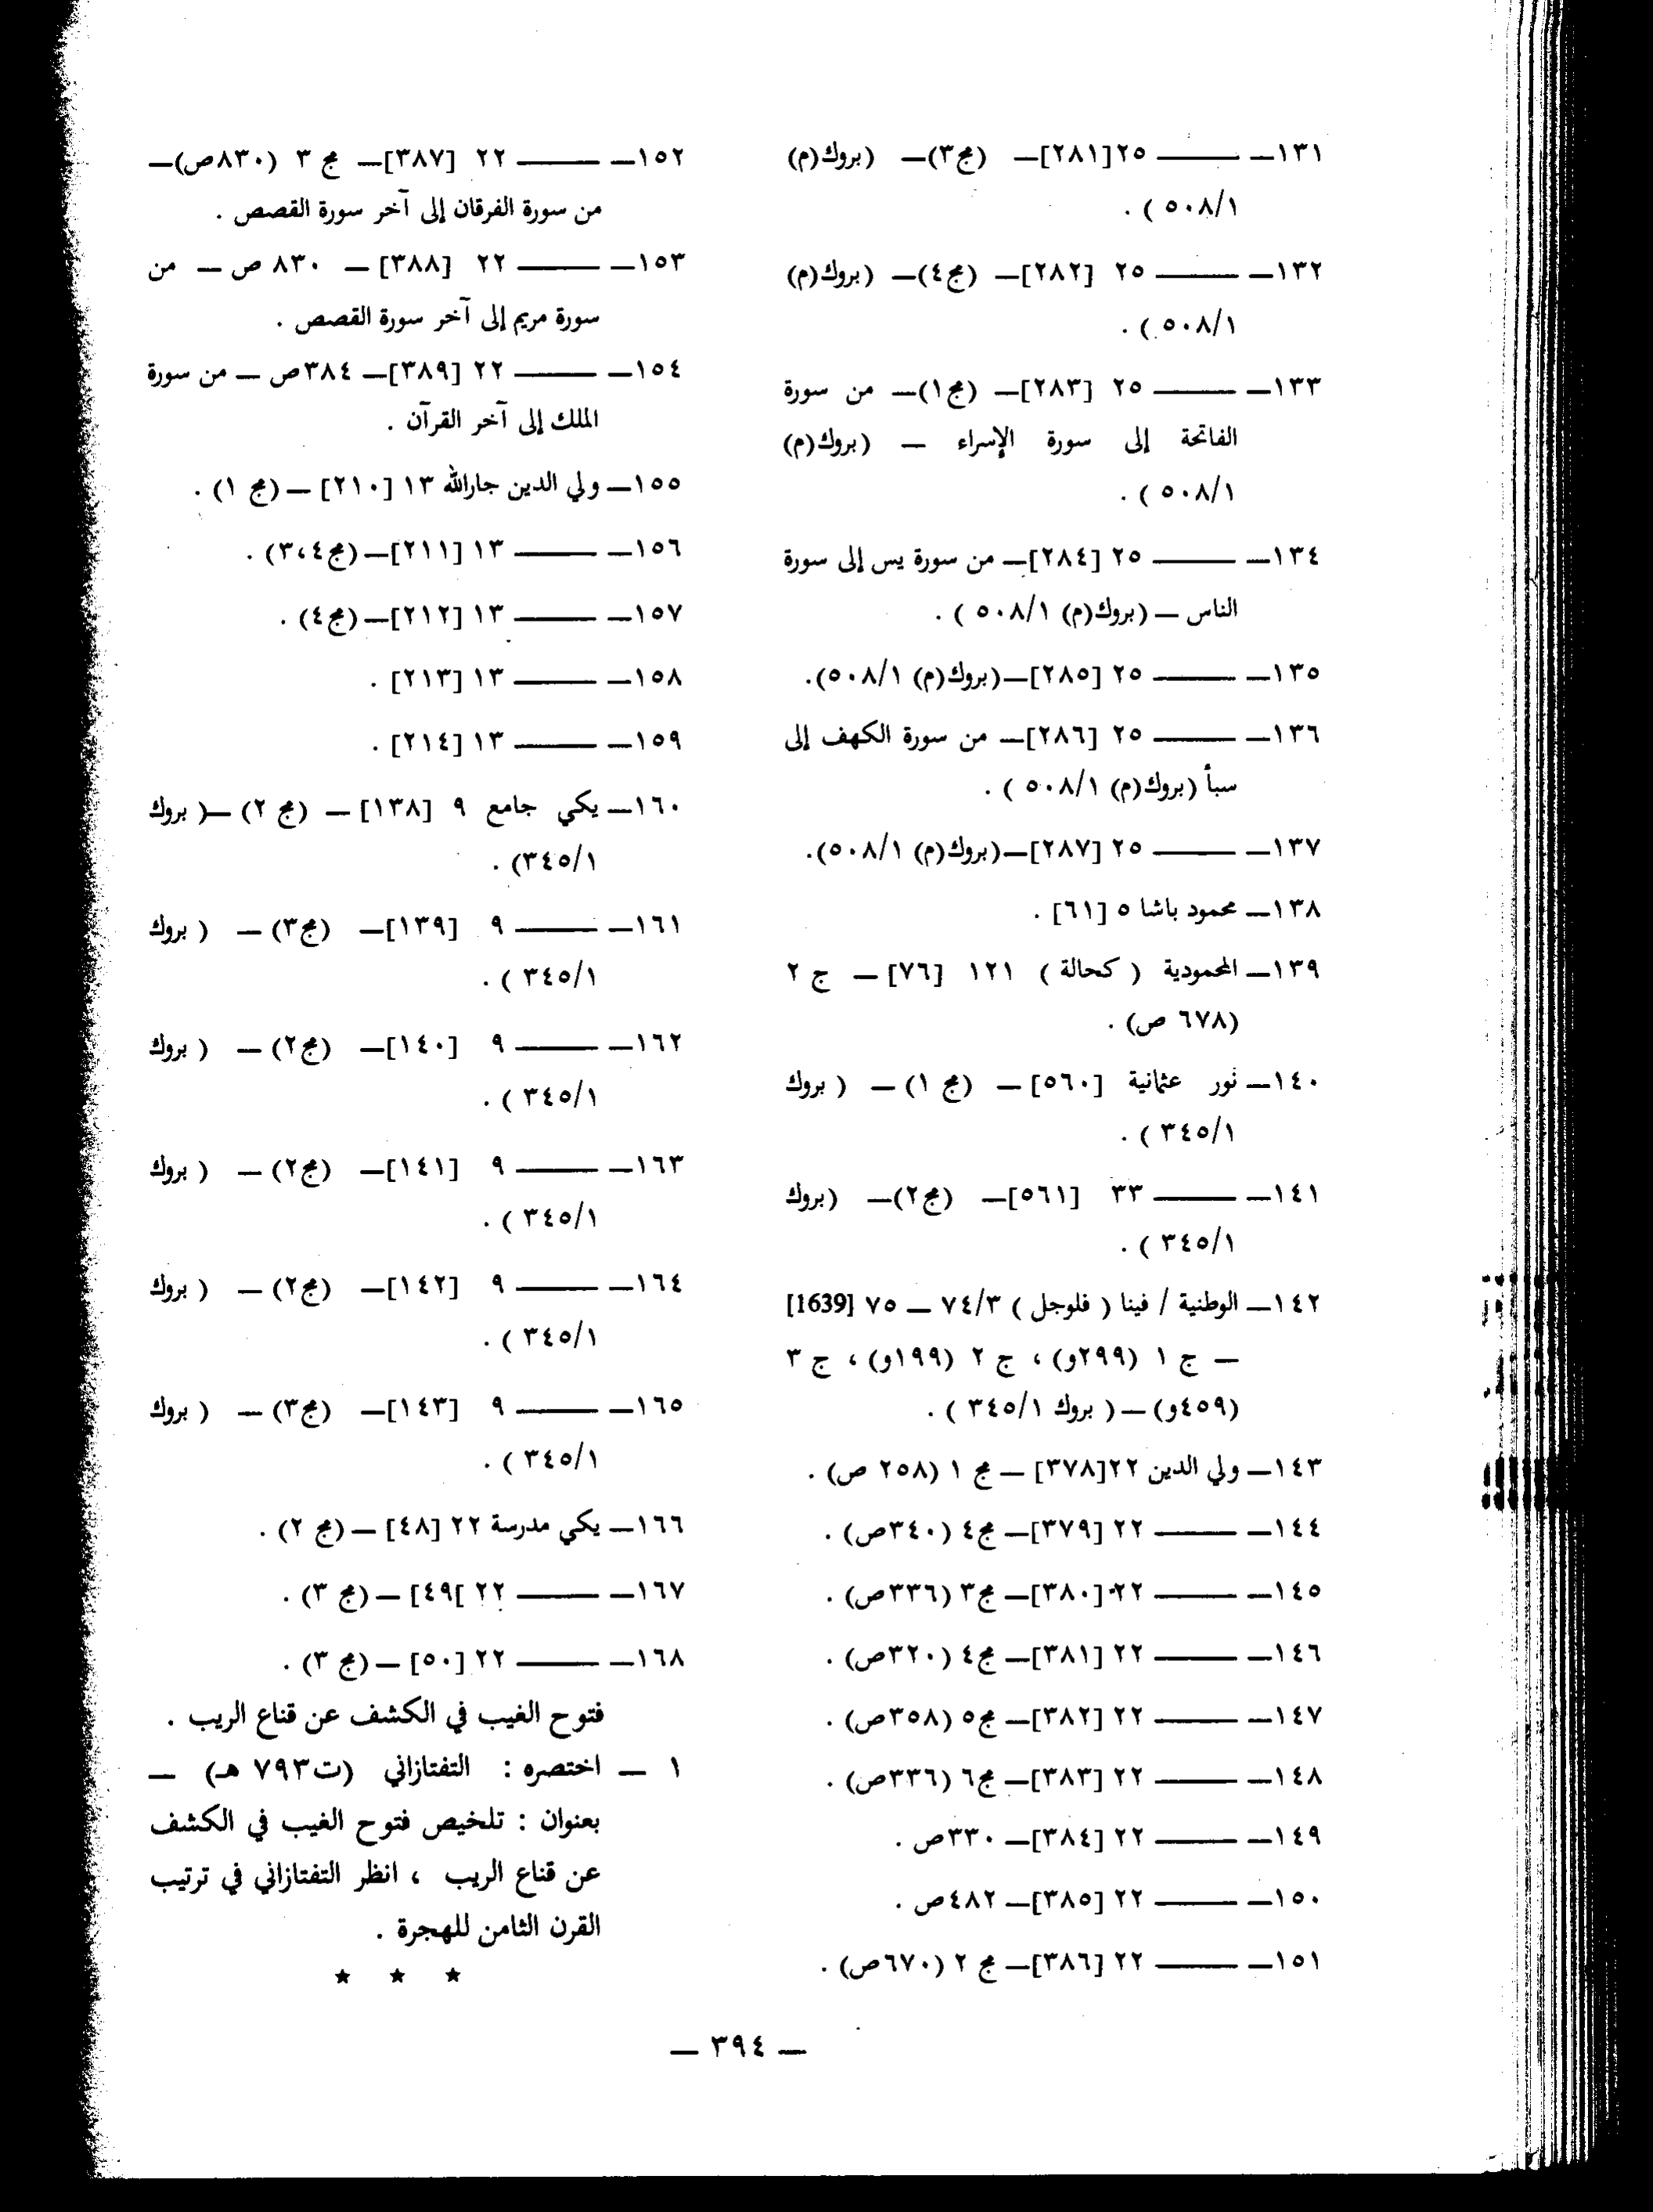 ١٣١ــ ـــــــ ٢٥[٢٨١]ــ (مج٣)ــ (بروك(م)
٥٠٨/١ ) .
١٣٢ــ ـــــــ ٢٥ [٢٨٢]ــ (مج٤)ــ (بروك(م)
٥٠٨/١ ) .
١٣٣ــ ـــــــ ٢٥ [٢٨٣]ــ (مج١)ــ من سورة
الفاتحة إلى سورة الإسراء ــ (بروك(م)
٥٠٨/١ ) .
١٣٤ــ ـــــــ ٢٥ [٢٨٤]ــ من سورة يس إلى سورة
الناس ــ (بروك(م) ٥٠٨/١ ) .
١٣٥ــ ـــــــ ٢٥ [٢٨٥]ــ(بروك(م) ٥٠٨/١).
١٣٦ــ ـــــــ ٢٥ [٢٨٦]ــ من سورة الكهف إلى
سبأ (بروك(م) ٥٠٨/١ ) .
١٣٧ــ ـــــــ ٢٥ [٢٨٧]ــ(بروك(م) ٥٠٨/١).
١٣٨ــ محمود باشا ٥ [٦١] .
١٣٩ــ المحمودية ( كحالة ) ١٢١ [٧٦] ــ ج ٢
(٦٧٨ ص) .
١٤٠ــ نور عثمانية [٥٦٠] ــ (مج ١) ــ ( بروك
٣٤٥/١ ) .
١٤١ــ ـــــــ ٣٣ [٥٦١]ــ (مج٢)ــ (بروك
٣٤٥/١ ) .
١٤٢ــ الوطنية / فينا ( فلوجل ) ٧٤/٣ ــ ٧٥ [1639]
ــ ج ١ (٢٩٩و) ، ج ٢ (١٩٩و) ، ج ٣
(٤٥٩و) ــ ( بروك ٣٤٥/١ ) .
١٤٣ــ ولي الدين ٢٢[٣٧٨] ــ مج ١ (٢٥٨ ص) .
١٤٤ــ ـــــــ ٢٢ [٣٧٩]ــ مج٤ (٣٤٠ص) .
١٤٥ــ ـــــــ ٢٢ [٣٨٠]ــ مج٣ (٣٣٦ص) .
١٤٦ــ ـــــــ ٢٢ [٣٨١]ــ مج٤ (٣٢٠ص) .
١٤٧ــ ـــــــ ٢٢ [٣٨٢]ــ مج٥ (٣٥٨ص) .
١٤٨ــ ـــــــ ٢٢ [٣٨٣]ــ مج٦ (٣٣٦ص) .
١٤٩ــ ـــــــ ٢٢ [٣٨٤]ــ ٣٣٠ص .
١٥٠ــ ـــــــ ٢٢ [٣٨٥]ــ ٤٨٢ص .
١٥١ــ ـــــــ ٢٢ [٣٨٦]ــ مج ٢ (٦٧٠ص) .
١٥٢ــ ـــــــ ٢٢ [٣٨٧]ــ مج ٣ (٨٣٠ص)ــ
من سورة الفرقان إلى آخر سورة القصص .
١٥٣ــ ـــــــ ٢٢ [٣٨٨] ــ ٨٣٠ ص ــ من
سورة مريم إلى آخر سورة القصص .
١٥٤ــ ـــــــ ٢٢ [٣٨٩]ــ ٣٨٤ص ــ من سورة
الملك إلى آخر القرآن .
١٥٥ــ ولي الدين جارالله ١٣ [٢١٠] ــ (مج ١) .
١٥٦ــ ـــــــ ١٣ [٢١١]ــ(مج٣،٤) .
١٥٧ــ ـــــــ ١٣ [٢١٢]ــ(مج٤) .
١٥٨ــ ـــــــ ١٣ [٢١٣] .
١٥٩ــ ـــــــ ١٣ [٢١٤] .
١٦٠ــ يكي جامع ٩ [١٣٨] ــ (مج ٢) ــ( بروك
٣٤٥/١) .
١٦١ــ ـــــــ ٩ [١٣٩]ــ (مج٣) ــ ( بروك
٣٤٥/١ ) .
١٦٢ــ ـــــــ ٩ [١٤٠]ــ (مج٢) ــ ( بروك
٣٤٥/١ ) .
١٦٣ــ ـــــــ ٩ [١٤١]ــ (مج٢) ــ ( بروك
٣٤٥/١ ) .
١٦٤ــ ـــــــ ٩ [١٤٢]ــ (مج٢) ــ ( بروك
٣٤٥/١ ) .
١٦٥ــ ـــــــ ٩ [١٤٣]ــ (مج٣) ــ ( بروك
٣٤٥/١ ) .
١٦٦ــ يكي مدرسة ٢٢ [٤٨] ــ (مج ٢) .
١٦٧ــ ـــــــ ٢٢ ]٤٩] ــ (مج ٣) .
١٦٨ــ ـــــــ ٢٢ [٥٠] ــ (مج ٣) .
فتوح الغيب في الكشف عن قناع الريب .
١ ــ اختصره : التفتازاني (ت٧٩٣ هـ) ــ
بعنوان : تلخيص فتوح الغيب في الكشف
عن قناع الريب ، انظر التفتازاني في ترتيب
القرن الثامن للهجرة .
★ ★ ★
ــ ٣٩٤ ــ